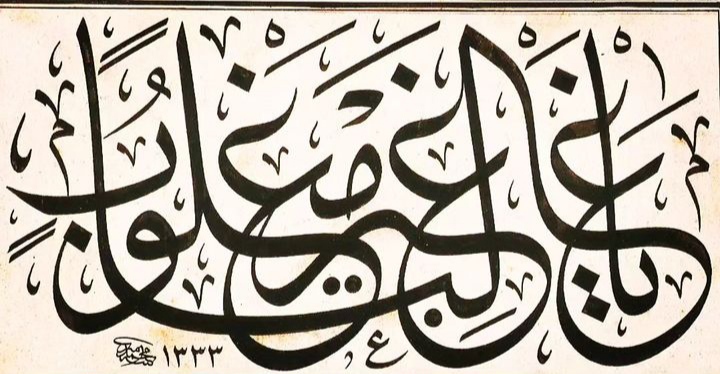 يَا غَالِبًا غَيْرَ مَغْلُوبٍ
١٣٣٣